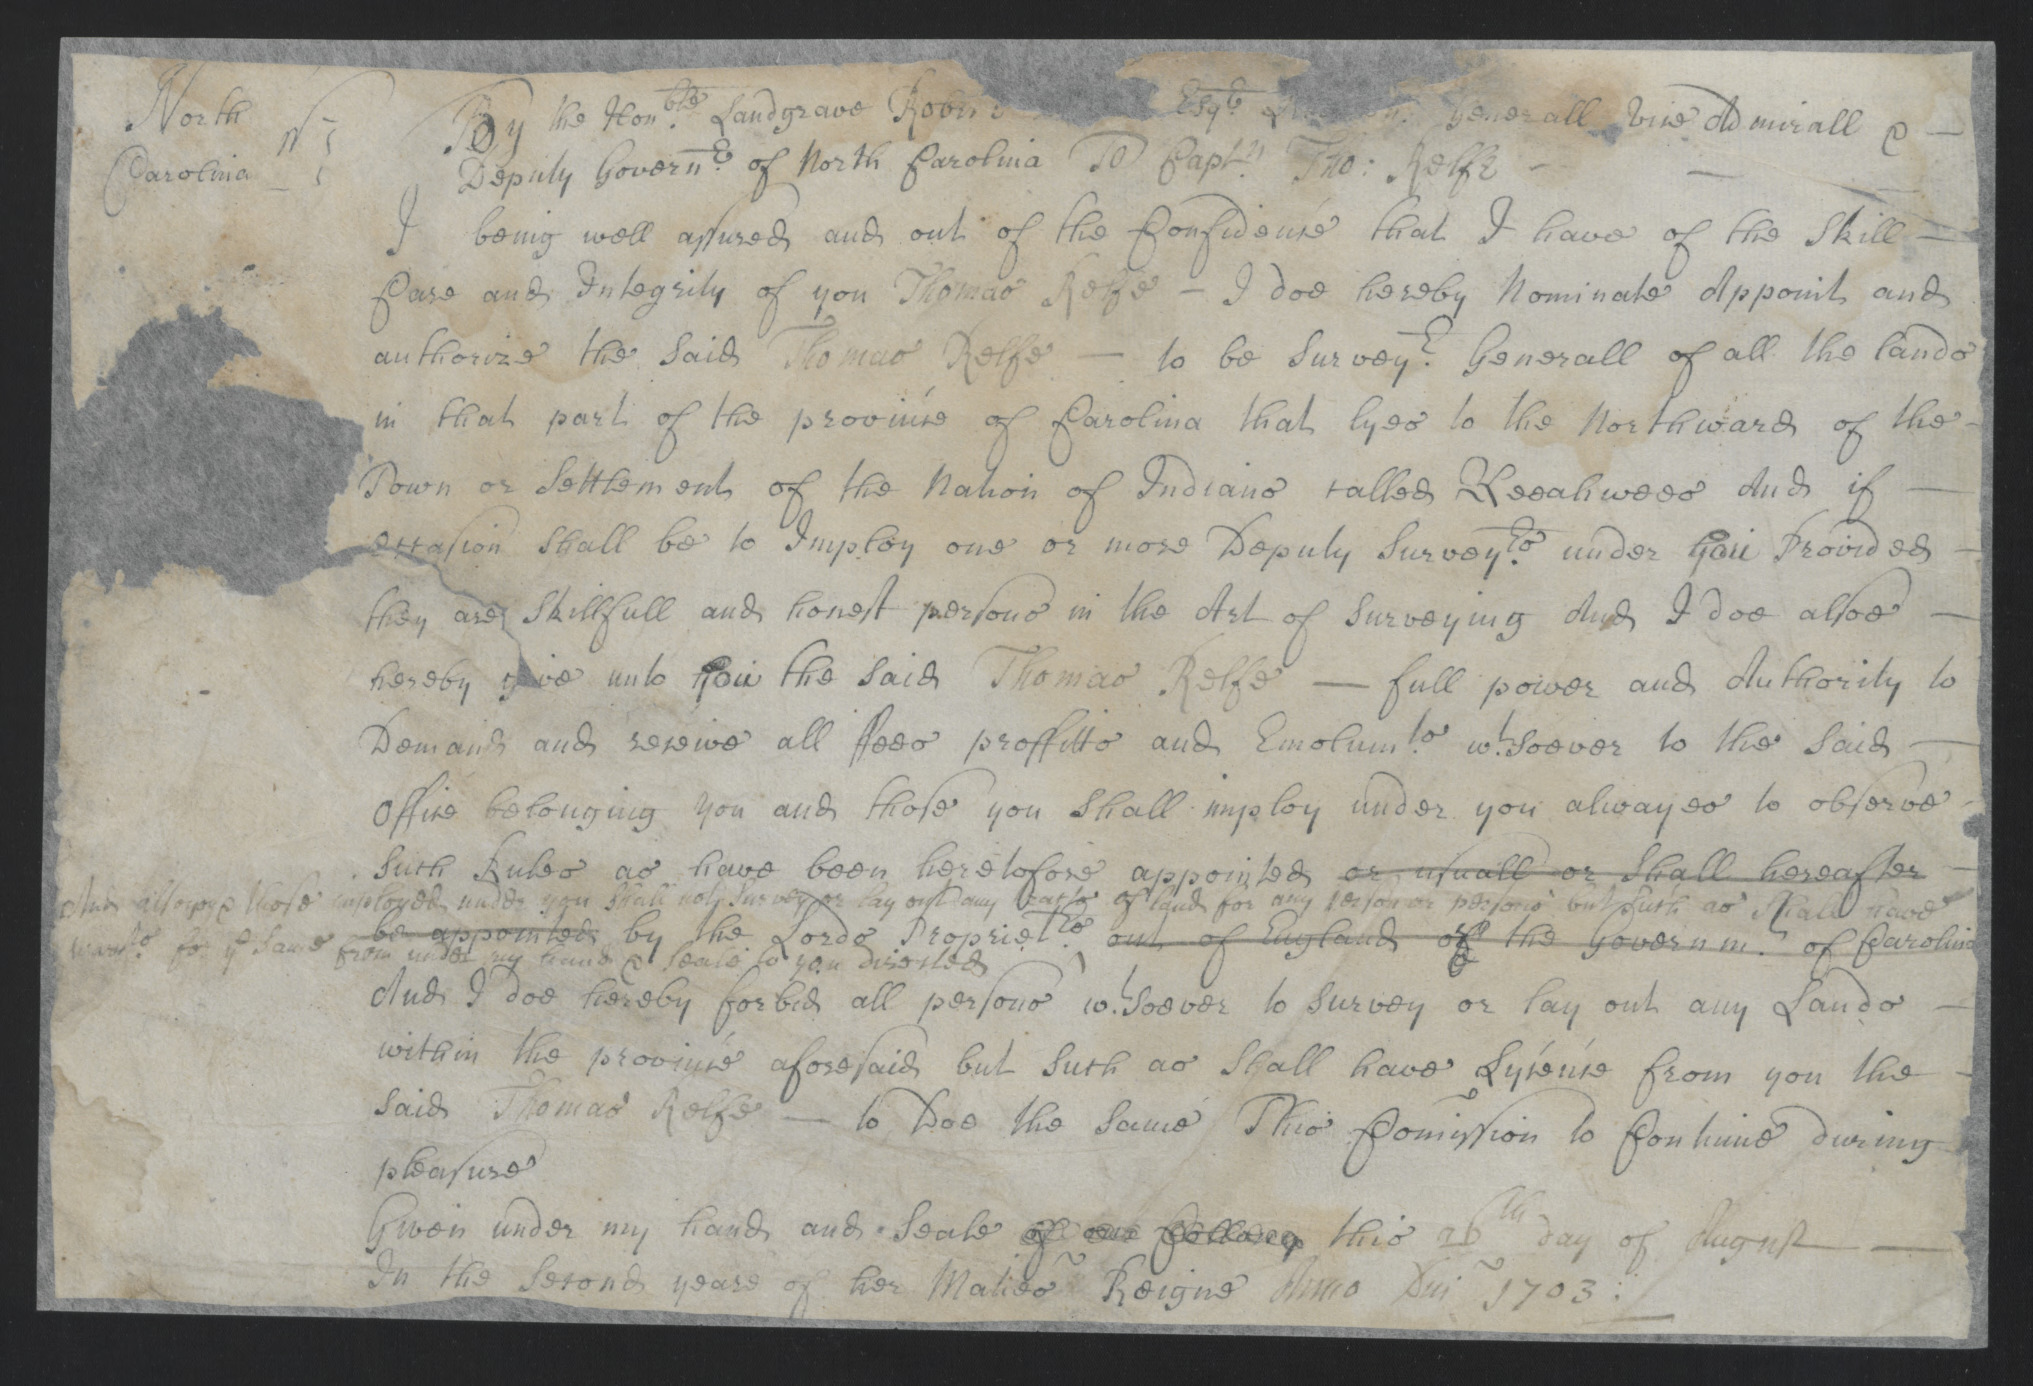 North
Carolina
By the Hon.ble Landgrave Robert Esqr Generall Vice Admirall &
Deputy Govern.r of North Carolina To Capt.n Tho: Relfe
I being well assured and out of the Confidence that I have of the Skill
Care and Integrity of you Thomas Relfe — I doe hereby Nominate Appoint and
authorize the said Thomas Relfe — to be Survey.r Generall of all the lands
in that part of the province of Carolina that lyes to the Northward of the
Town or Settlement of the Nation of Indians called And if —
occasion shall be to Imploy one or more Deputy Survey.rs under you Provided
they are Skillfull and honest persons in the Art of Surveying And I doe alsoe
hereby give unto you the said Thomas Relfe — full power and Authority to
Demand and receive all ffees proffitts and Emolum.ts w.tsoever to the said
Office belonging you and those you shall imploy under you alwayes to observe
Such Rules as have been heretofore appointed or usuall or shall hereafter
And those imployed under you shall not Survey or lay out any of land for any person or persons but such as shall have
be appointed by the Lords Propriet.rs out of England of the Governm.t of Carolina
warr.ts for ye same from under my hand & seale to you directed
And I doe hereby forbid all persons w.tsoever to Survey or lay out any Lands
within the province aforesaid but such as shall have Lycence from you the
said Thomas Relfe — to Doe the same This Comission to Continue during
pleasure
Given under my hand and Seale this 26th day of August
In the Second yeare of her Maties Reigne Anno Dni 1703: